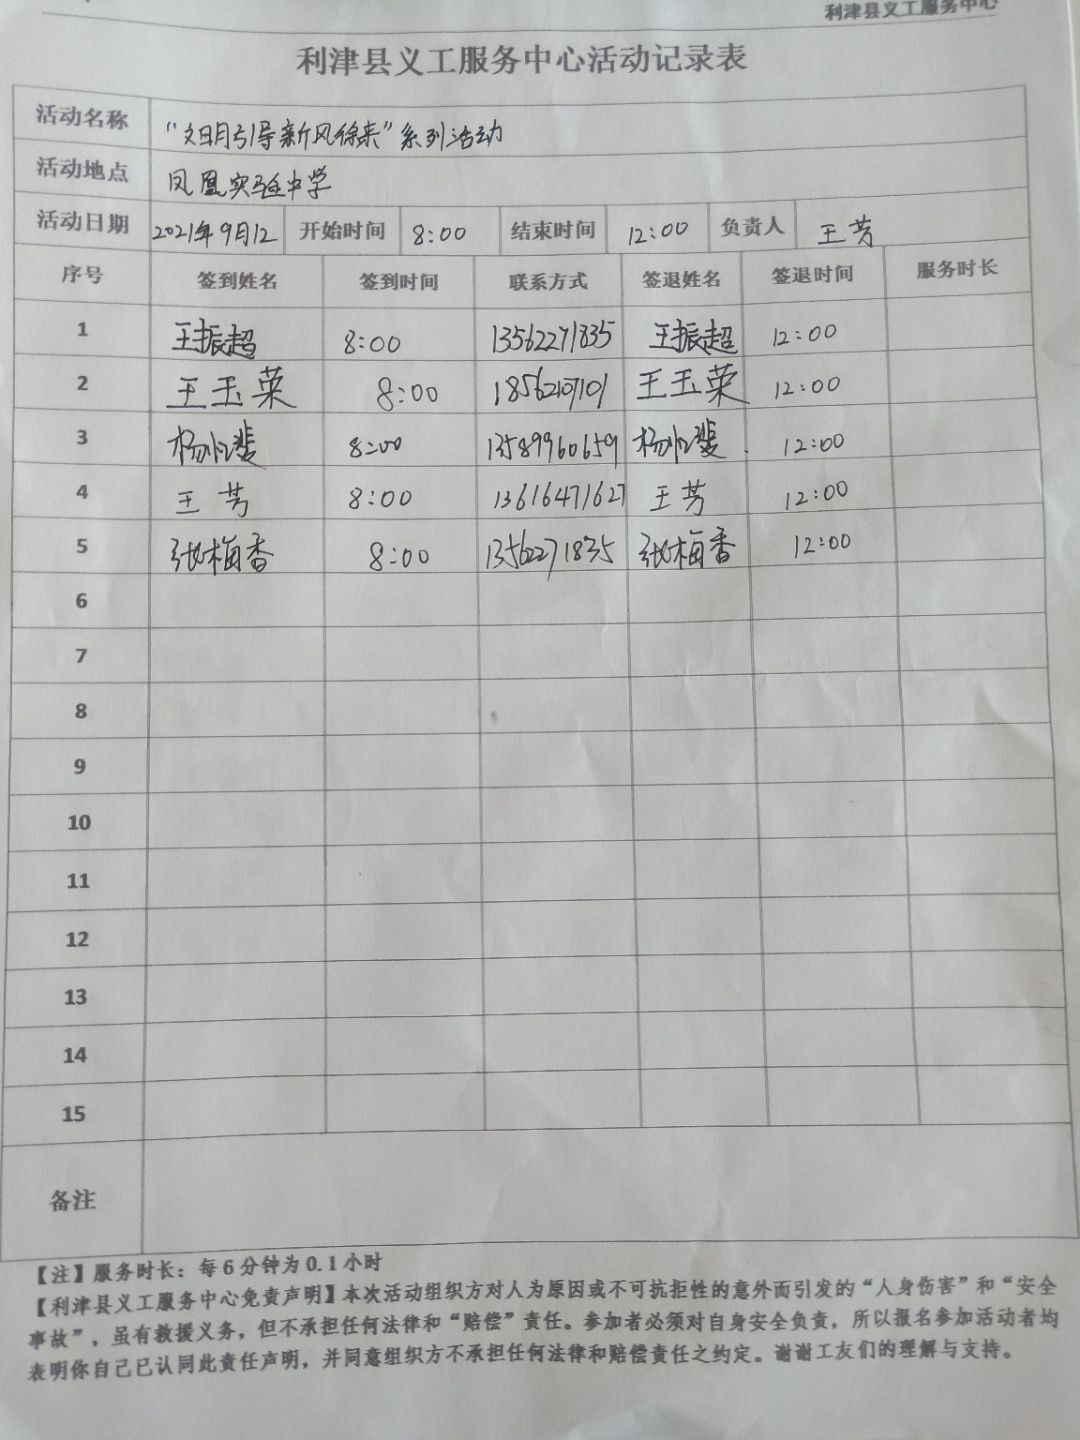 利津县义工服务中心
利津县义工服务中心活动记录表
活动名称 “文明引导新风徐来”系列活动
活动地点 凤凰实验中学
活动日期 2021年9月12 开始时间 8:00 结束时间 12:00 负责人 王芳
序号 签到姓名 签到时间 联系方式 签退姓名 签退时间 服务时长
1 王振超 8:00 13562271835 王振超 12:00
2 王玉荣 8:00 18562107101 王玉荣 12:00
3 8:00 13589960659 12:00
4 王芳 8:00 13616471627 王芳 12:00
5 张梅香 8:00 13562271835 张梅香 12:00
6
7
8
9
10
11
12
13
14
15
备注
【注】服务时长：每6分钟为0.1小时
【利津县义工服务中心免责声明】本次活动组织方对人为原因或不可抗拒性的意外而引发的“人身伤害”和“安全
事故”，虽有救援义务，但不承担任何法律和“赔偿”责任。参加者必须对自身安全负责，所以报名参加活动者均
表明你自己已认同此责任声明，并同意组织方不承担任何法律和赔偿责任之约定。谢谢工友们的理解与支持。